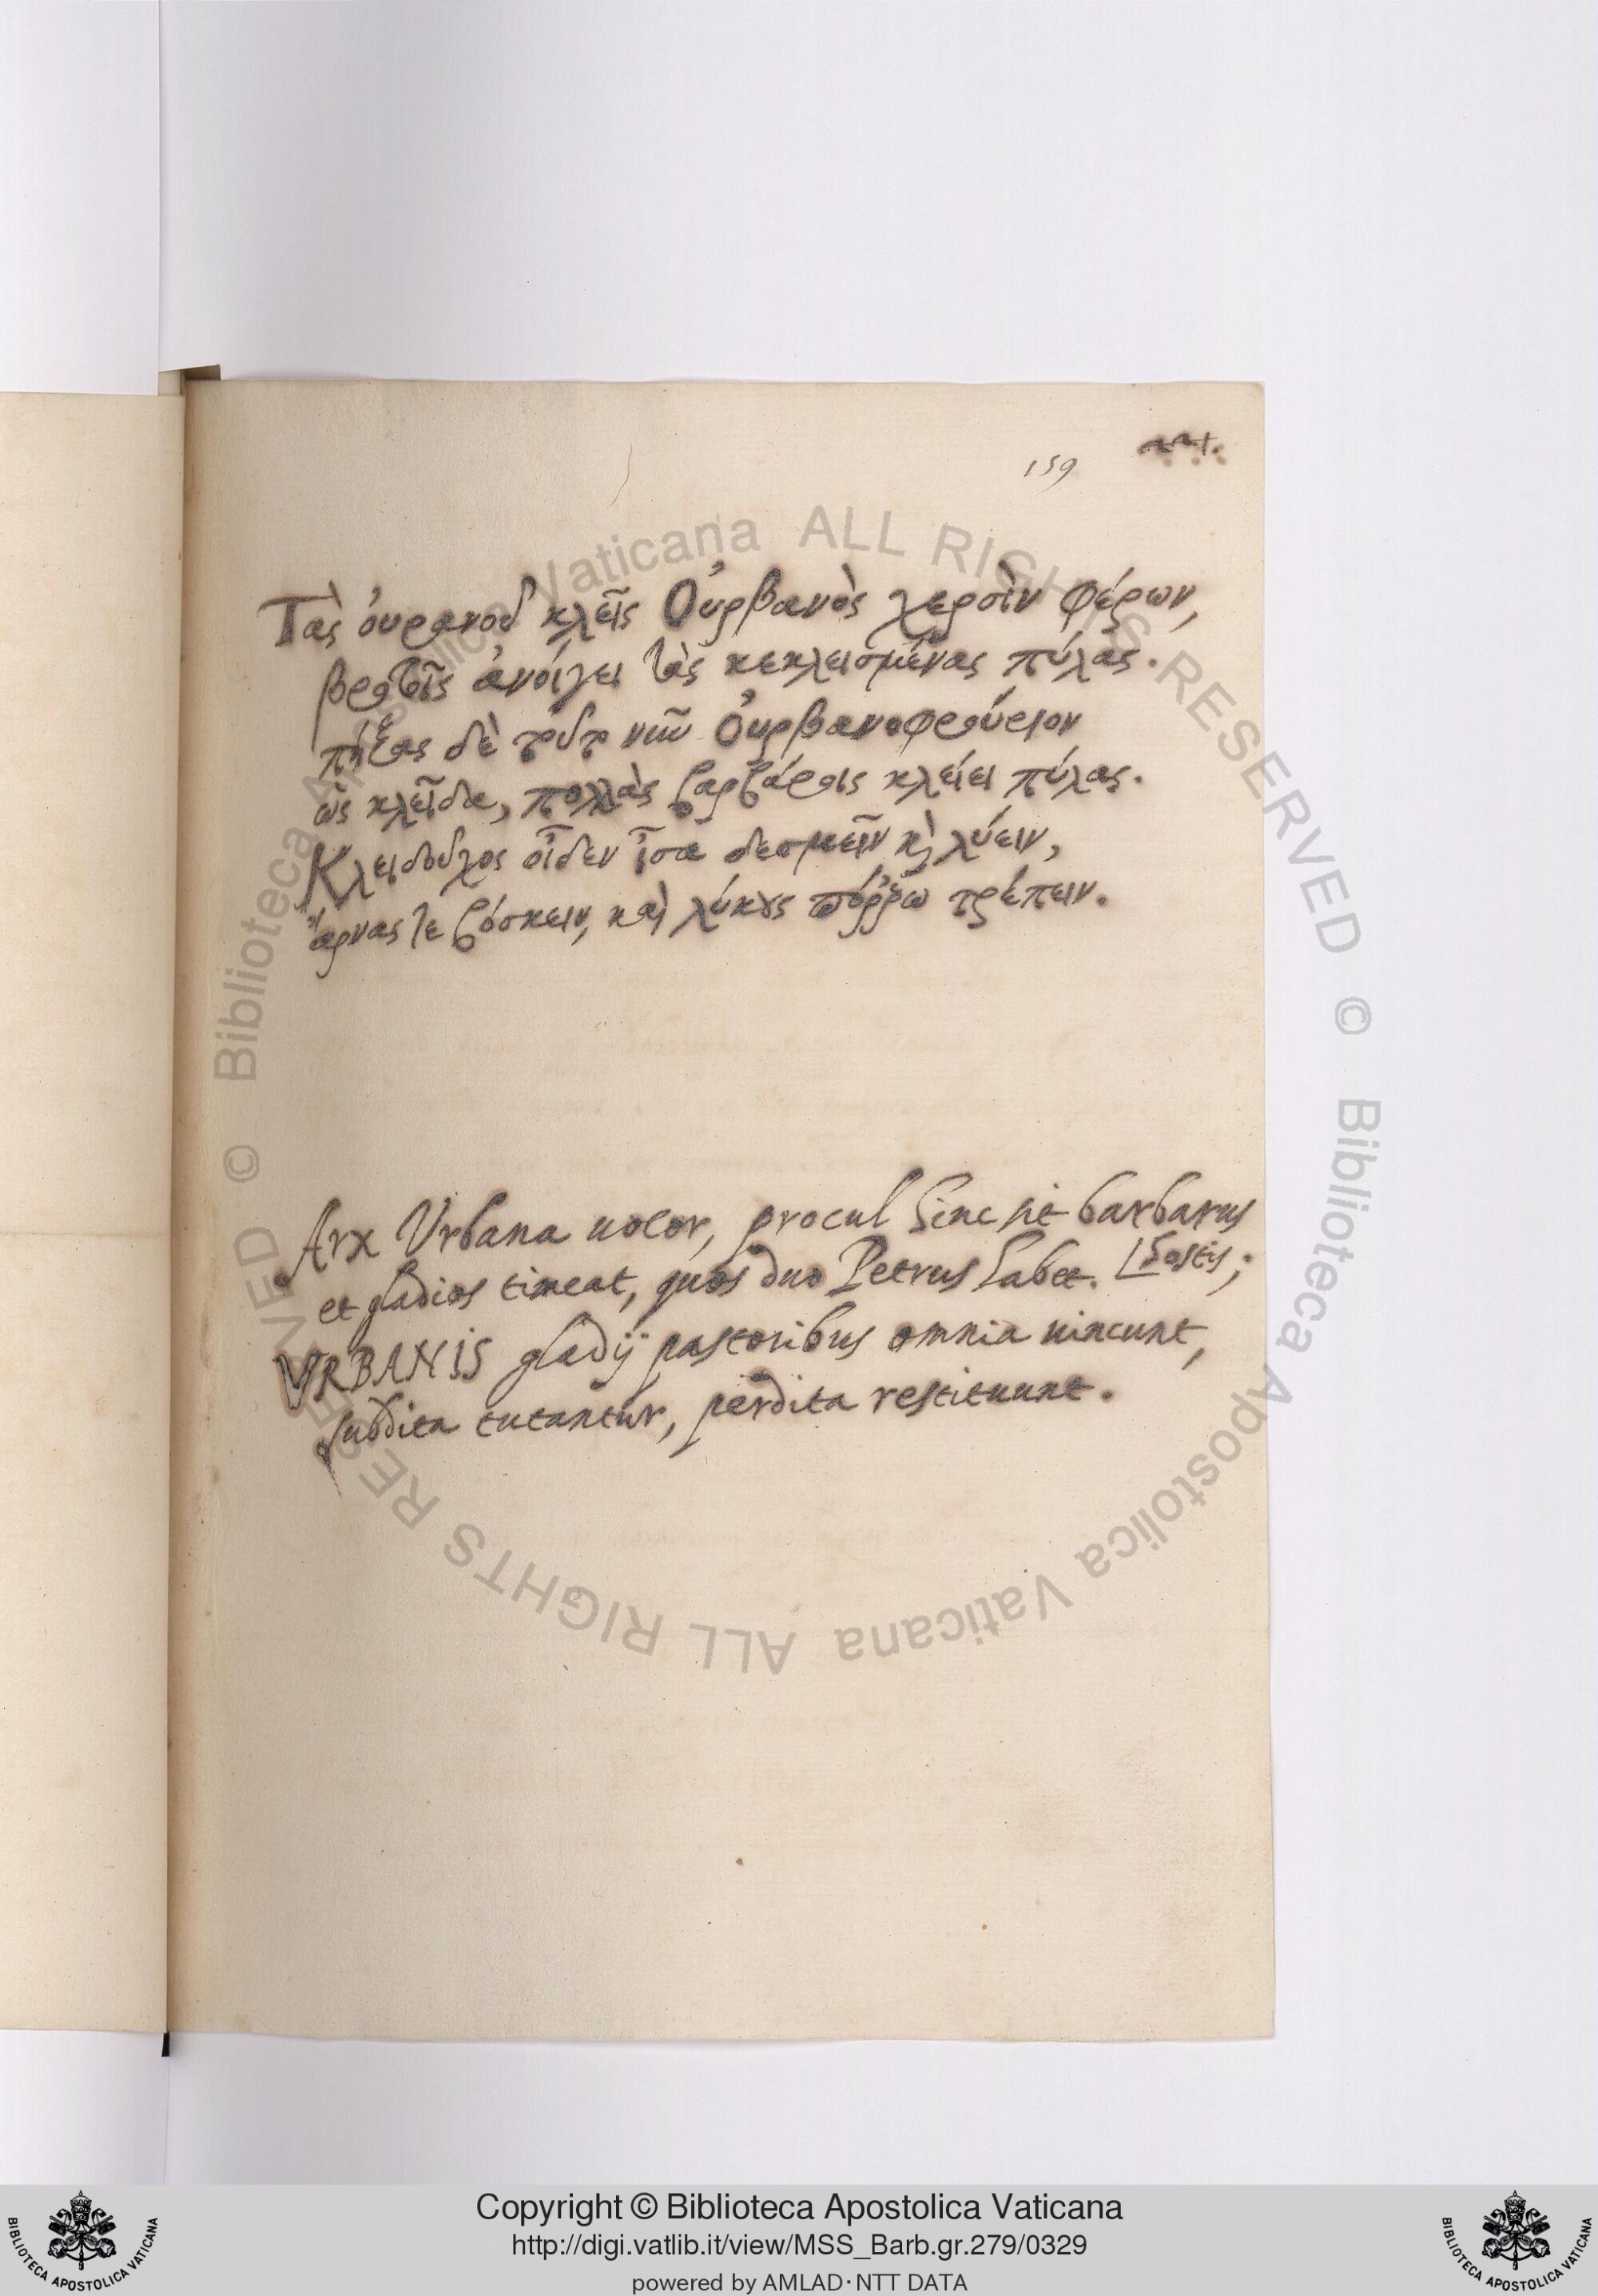 159
Τὰς ὀυρανοῦ κλεῖς Ὀυρβανὸς χερσὶν φέρων,
βροτοῖς ἀνοίγει τὰς κεκλεισμένας πύλας.
πήξας δὲ τοῦτο νῦν Ὀυρβανοφρούριον
ὡς κλεῖδα, πολλὰς βαρβάροις κλείει πύλας.
Κλειδοῦχος οἶδεν ἶσα δεσμεῖν κ̀ λύειν,
ἄρνας τε βόσκειν, καὶ λύκȣς πόῤῥω τρέπειν.
Arx Urbana uocor, procul hinc sit barbarus
[hostis;
et gladios timeat, quos duo Petrus habet.
VRBANIS gladij pastoribus omnia uincunt,
subdita tutantur, perdita restituunt.
Biblioteca Apostolica Vaticana ALL RIGHTS RESERVED © Biblioteca Apostolica Vaticana ALL RIGHTS RESERVED ©
Copyright © Biblioteca Apostolica Vaticana
http://digi.vatlib.it/view/MSS_Barb.gr.279/0329
powered by AMLAD·NTT DATA
BIBLIOTECA APOSTOLICA VATICANA
BIBLIOTECA APOSTOLICA VATICANA